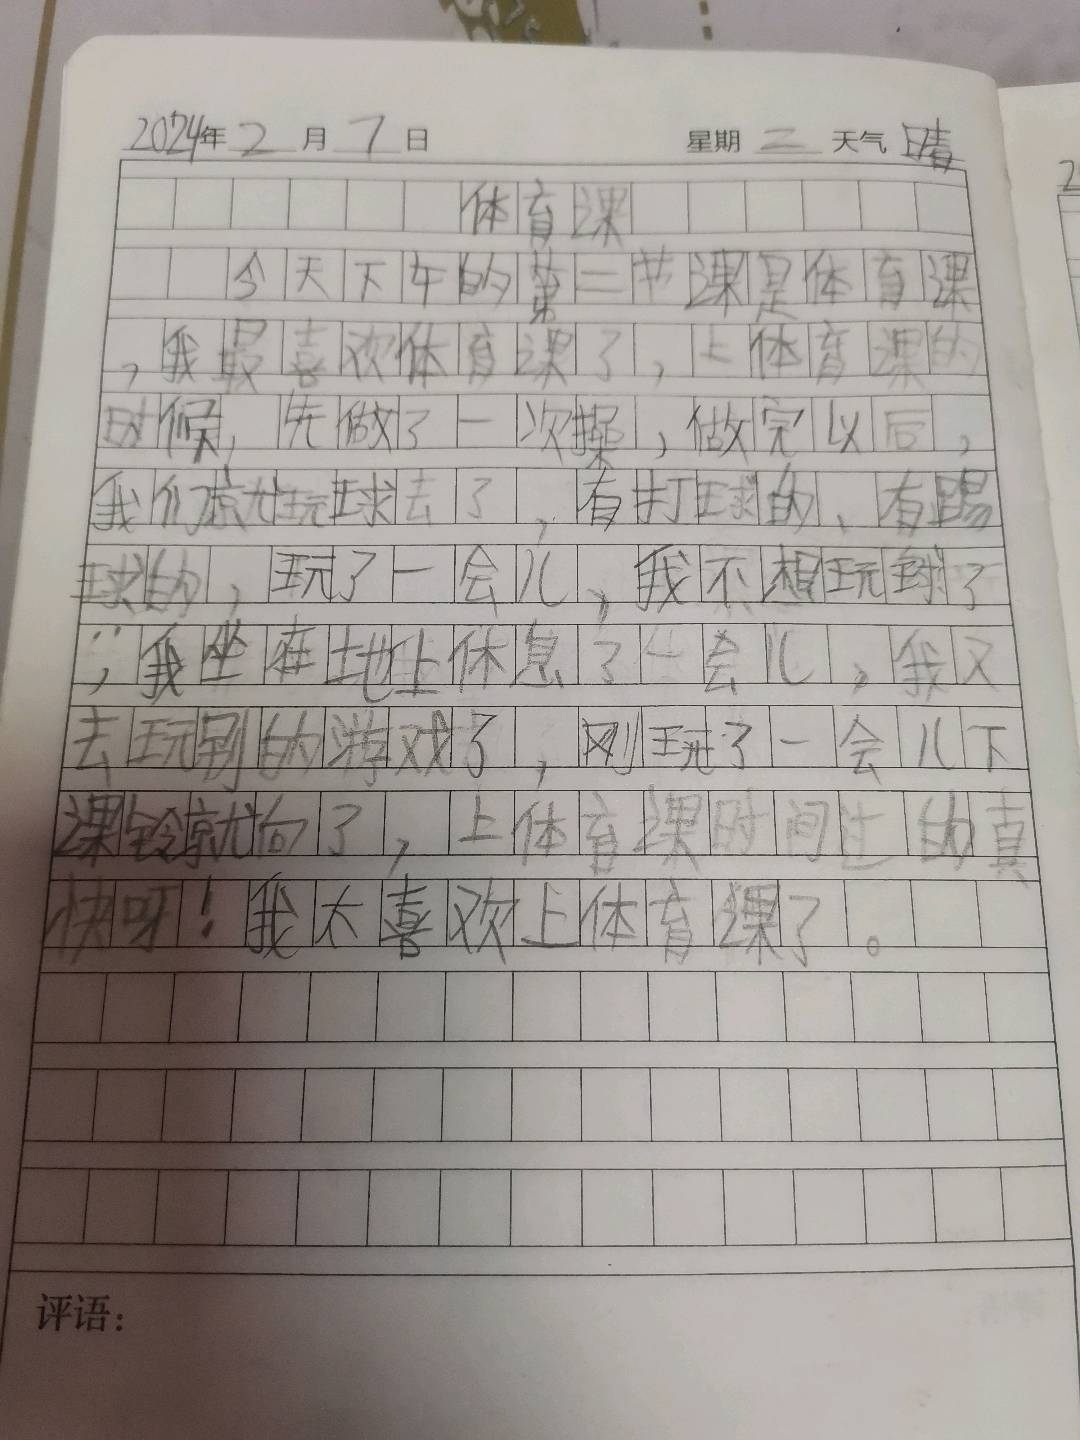 2024年2月7日 星期三 天气晴
体育课
今天下午的第二节课是体育课
，我最喜欢体育课了，上体育课的
时候，先做了一次操，做完以后，
我们就玩球去了，有打球的、有踢
球的，玩了一会儿，我不想玩球了
，我坐在地上休息了一会儿，我又
去玩别的游戏了，刚玩了一会儿下
课铃就向了，上体育课时间过的真
快呀！我太喜欢上体育课了。
评语：